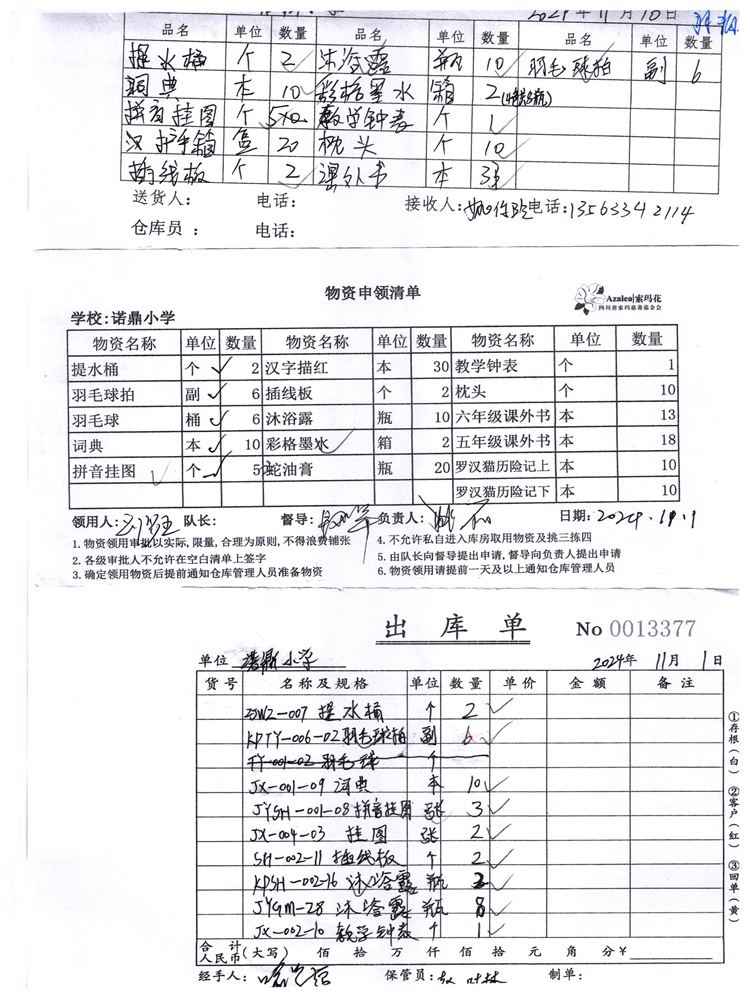 2024年11月10日
品名 单位 数量 品名 单位 数量 品名 单位 数量
提水桶 个 2 沐浴露 瓶 10 羽毛球拍 副 6
词典 本 10 彩格墨水 箱 2
拼音挂图 个 5 教学钟表 个 1
个 20 枕头 个 10
插线板 个 2 课外书 本
送货人: 电话: 接收人: 电话:13563342114
仓库员: 电话:
物资申领清单
Azalea|索玛花
四川省索玛慈善基金会
学校:诺鼎小学
物资名称 单位 数量 物资名称 单位 数量 物资名称 单位 数量
提水桶 个 2 汉字描红 本 30 教学钟表 个 1
羽毛球拍 副 6 插线板 个 2 枕头 个 10
羽毛球 桶 6 沐浴露 瓶 10 六年级课外书 本 13
词典 本 10 彩格墨水 箱 2 五年级课外书 本 18
拼音挂图 个 5 蛇油膏 瓶 20 罗汉猫历险记上 本 10
罗汉猫历险记下 本 10
领用人: 队长: 督导: 负责人: 日期:2024.11.1
1.物资领用审批以实际,限量,合理为原则,不得浪费铺张 4.不允许私自进入库房取用物资及挑三拣四
2.各级审批人不允许在空白清单上签字 5.由队长向督导提出申请,督导向负责人提出申请
3.确定领用物资后提前通知仓库管理人员准备物资 6.物资领用请提前一天及以上通知仓库管理人员
出库单 No 0013377
单位 诺鼎小学 2024年 11月 1日
货号 名称及规格 单位 数量 单价 金额 备注
ZJWZ-007 提水桶 个 2
KPTY-006-02 羽毛球拍 副 6
TY-001-02 羽毛球 个
JX-001-09 词典 本 10
JYSH-001-08 拼音挂图 张 3
JX-004-03 挂图 张 2
SH-002-11 插线板 个 2
KPSH-002-16 沐浴露 瓶 2
JYGM-28 沐浴露 瓶 8
JX-002-10 教学钟表 个 1
合计人民币(大写) 佰 拾 万 仟 佰 拾 元 角 分 ¥
经手人: 保管员: 制单:
①存根(白) ②客户(红) ③回单(黄)